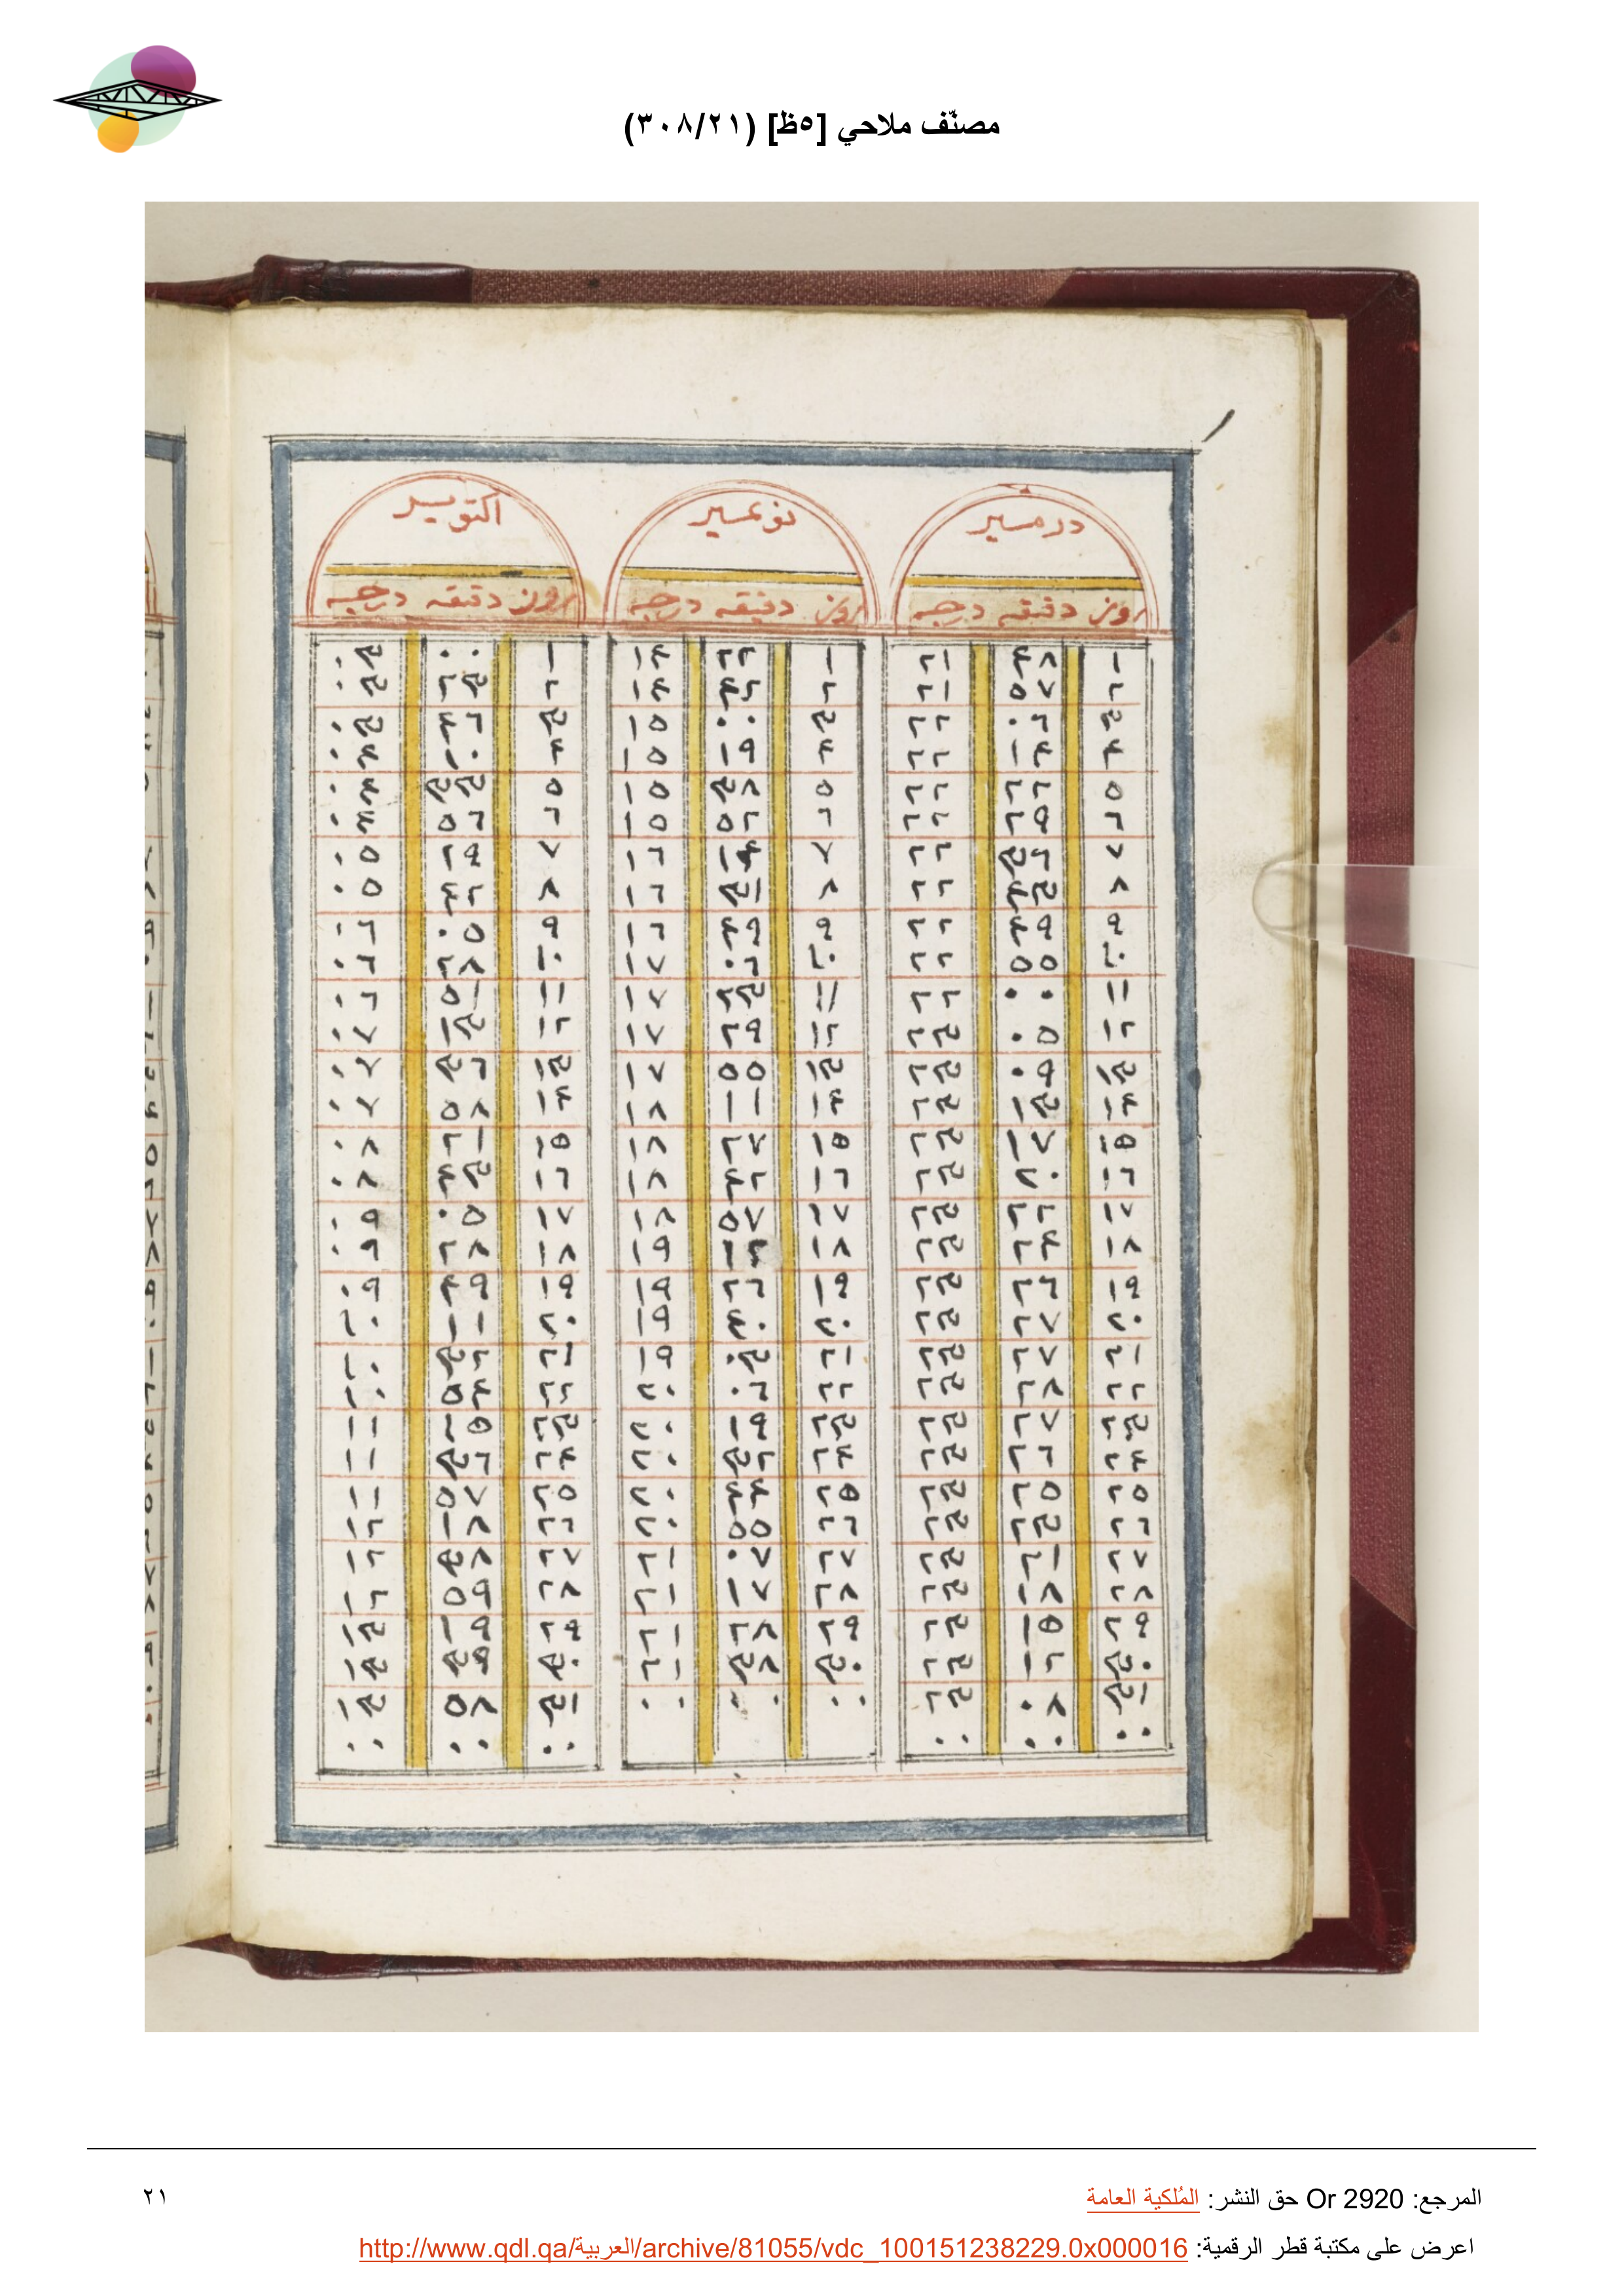 مصنّف ملاحي [٥ظ] (٣٠٨/٢١)
درمسير نوعمسير اكتوبسير
روز دقيقه درجه روز دقيقه درجه روز دقيقه درجه
١ ٤٨ ٢١ ١ ٢٢ ١٤ ١ ٠٠ ٠٣
٢ ٥٧ ٢١ ٢ ٤٢ ١٤ ٢ ٢٣ ٠٣
٣ ٠٦ ٢٢ ٣ ٠٠ ١٥ ٣ ٤٦ ٠٣
٤ ١٤ ٢٢ ٤ ١٩ ١٥ ٤ ١٠ ٠٤
٥ ٢٢ ٢٢ ٥ ٣٨ ١٥ ٥ ٣٣ ٠٤
٦ ٢٩ ٢٢ ٦ ٥٢ ١٥ ٦ ٥٦ ٠٤
٧ ٣٦ ٢٢ ٧ ١٤ ١٦ ٧ ٢٩ ٠٥
٨ ٤٣ ٢٢ ٨ ٣١ ١٦ ٨ ٤٢ ٠٥
٩ ٤٩ ٢٢ ٩ ٤٩ ١٦ ٩ ٠٥ ٠٦
١٠ ٥٥ ٢٢ ١٠ ٠٦ ١٧ ١٠ ٢٨ ٠٦
١١ ٠٠ ٢٢ ١١ ٢٣ ١٧ ١١ ٥١ ٠٦
١٢ ٠٥ ٢٣ ١٢ ٢٩ ١٧ ١٢ ١٣ ٠٧
١٣ ٠٩ ٢٣ ١٣ ٥٥ ١٧ ١٣ ٣٦ ٠٧
١٤ ١٣ ٢٣ ١٤ ١١ ١٨ ١٤ ٥٨ ٠٧
١٥ ١٧ ٢٣ ١٥ ٢٧ ١٨ ١٥ ٢١ ٠٨
١٦ ٢٠ ٢٣ ١٦ ٤٢ ١٨ ١٦ ٤٣ ٠٨
١٧ ٢٢ ٢٣ ١٧ ٥٧ ١٨ ١٧ ٠٥ ٠٩
١٨ ٢٤ ٢٣ ١٨ ١٢ ١٩ ١٨ ٢٨ ٠٩
١٩ ٢٦ ٢٣ ١٩ ٢٦ ١٩ ١٩ ٤٩ ٠٩
٢٠ ٢٧ ٢٣ ٢٠ ٤٠ ١٩ ٢٠ ١١ ١٠
٢١ ٢٧ ٢٣ ٢١ ٠٣ ١٩ ٢١ ٣٢ ١٠
٢٢ ٢٨ ٢٣ ٢٢ ٠٦ ٢٠ ٢٢ ٥٤ ١٠
٢٣ ٢٧ ٢٣ ٢٣ ١٩ ٢٠ ٢٣ ١٥ ١١
٢٤ ٢٦ ٢٣ ٢٤ ٣٢ ٢٠ ٢٤ ٣٦ ١١
٢٥ ٢٥ ٢٣ ٢٥ ٤٤ ٢٠ ٢٥ ٥٧ ١١
٢٦ ٢٣ ٢٣ ٢٦ ٥٥ ٢٠ ٢٦ ١٨ ١٢
٢٧ ٢١ ٢٣ ٢٧ ٠٧ ٢١ ٢٧ ٣٨ ١٢
٢٨ ١٨ ٢٣ ٢٨ ١٧ ٢١ ٢٨ ٥٩ ١٢
٢٩ ١٥ ٢٣ ٢٩ ٢٨ ٢١ ٢٩ ١٩ ١٣
٣٠ ١٢ ٢٣ ٣٠ ٣٨ ٢١ ٣٠ ٣٩ ١٣
٣١ ٠٨ ٢٣ ٠٠ ٠٠ ٠٠ ٣١ ٥٨ ١٣
٠٠ ٠٠ ٠٠ ٠٠ ٠٠ ٠٠
المرجع: Or 2920 حق النشر: المُلكية العامة
٢١
اعرض على مكتبة قطر الرقمية: http://www.qdl.qa/العربية/archive/81055/vdc_100151238229.0x000016